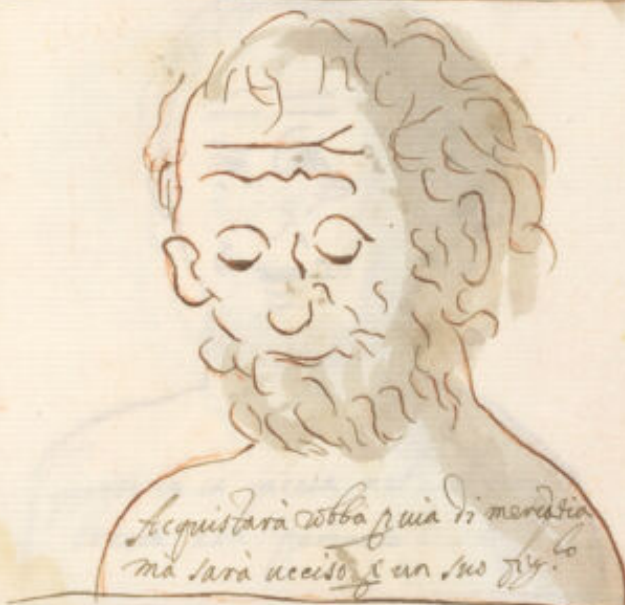 Acquistarà robba p uia di mercãtia
mà sarà ucciso p un suo fig.lo